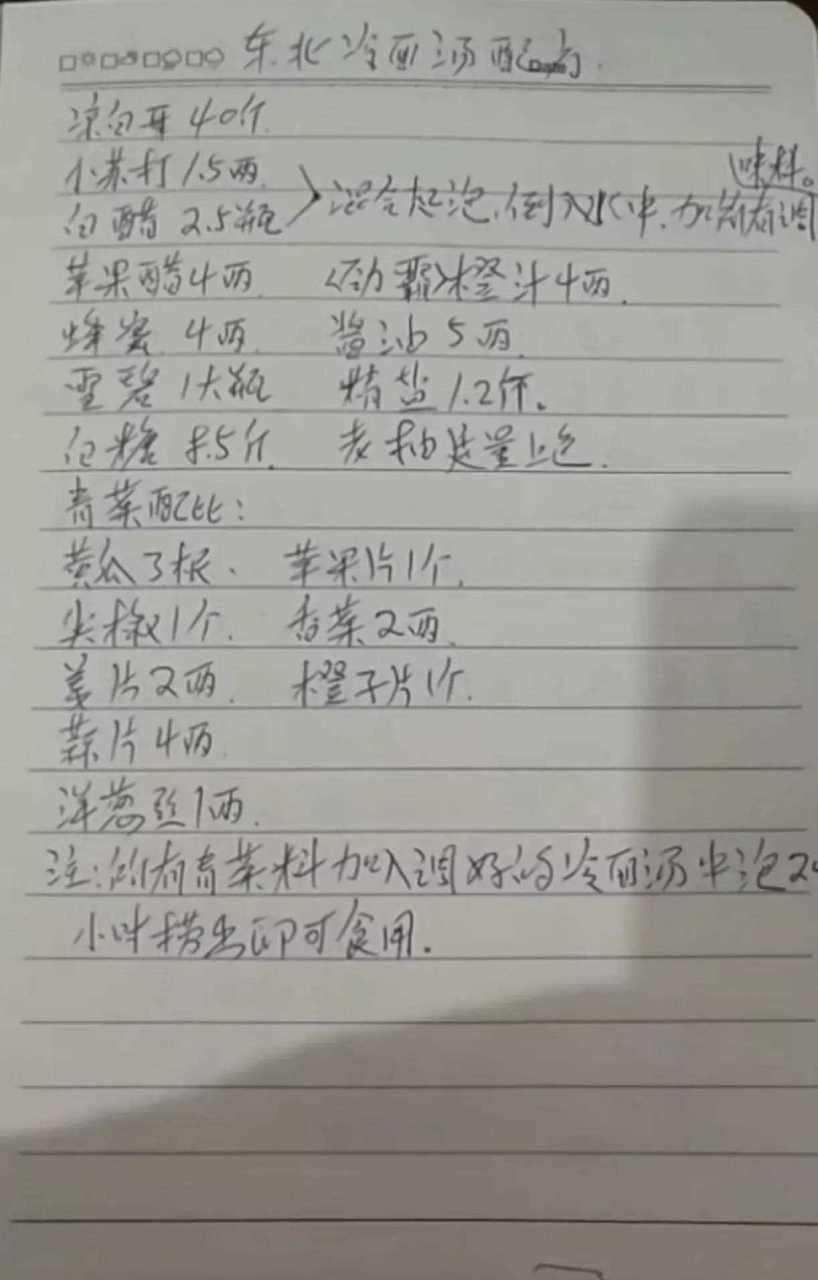 东北冷面汤配方
凉白开40斤
小苏打1.5两
白醋2.5瓶 > 混合起泡,倒入水中,加所有调味料。
苹果醋4两 <劲霸>橙汁4两
蜂蜜4两 酱油5两
雪碧1大瓶 精盐1.2斤。
白糖8.5斤 老抽适量上色.
青菜配比:
黄瓜3根、 苹果片1个.
尖椒1个. 香菜2两.
姜片2两. 橙子片1个.
蒜片4两
洋葱丝1两.
注:所有青菜料加入调好的冷面汤中泡2
小时捞出即可食用.